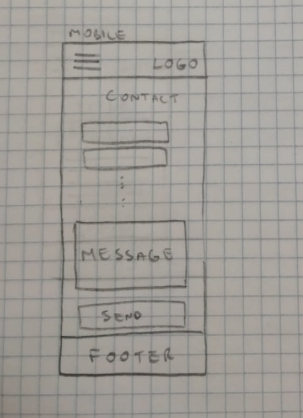 MOBILE
LOGO
CONTACT
MESSAGE
SEND
FOOTER